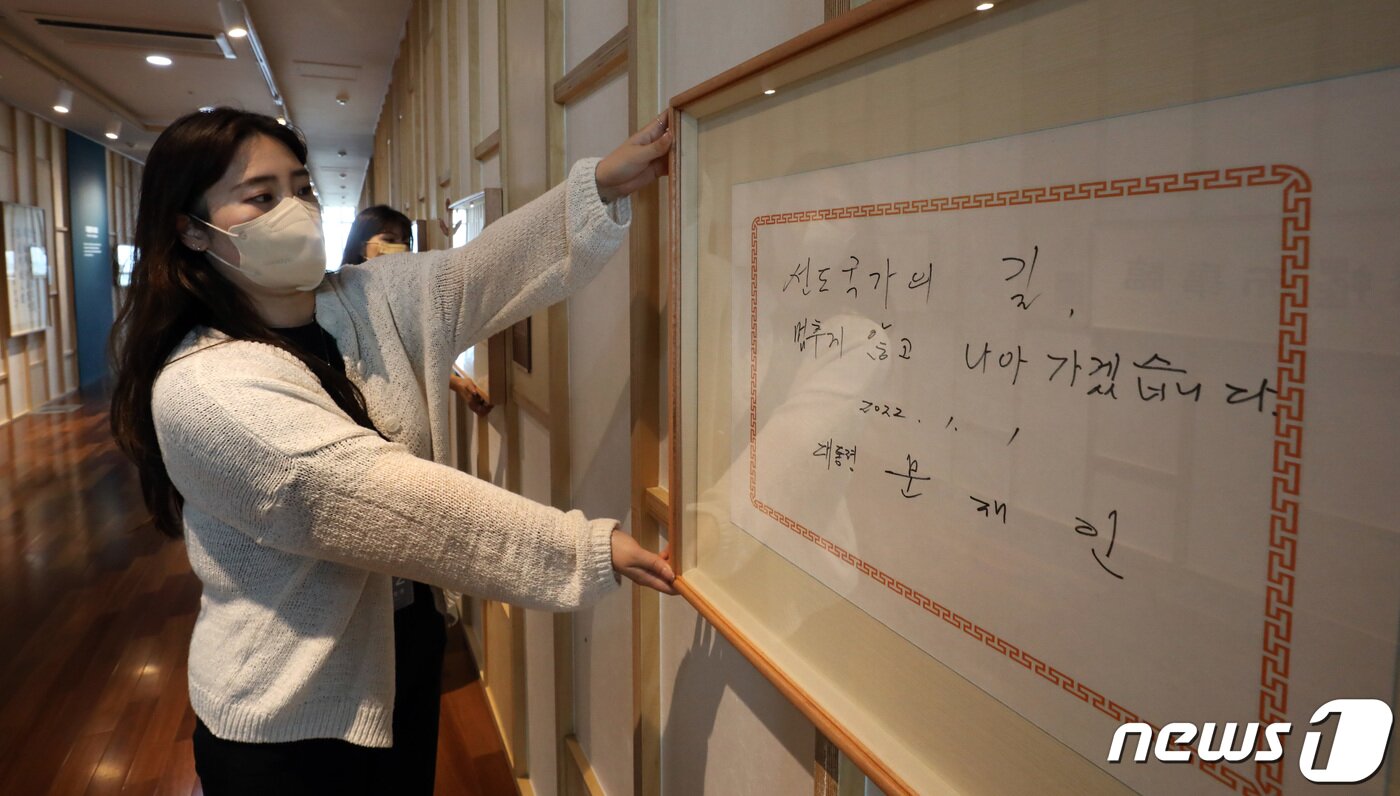 선도국가의 길,
멈추지 않고 나아가겠습니다.
2022. 1. 1
대통령 문재인
news1